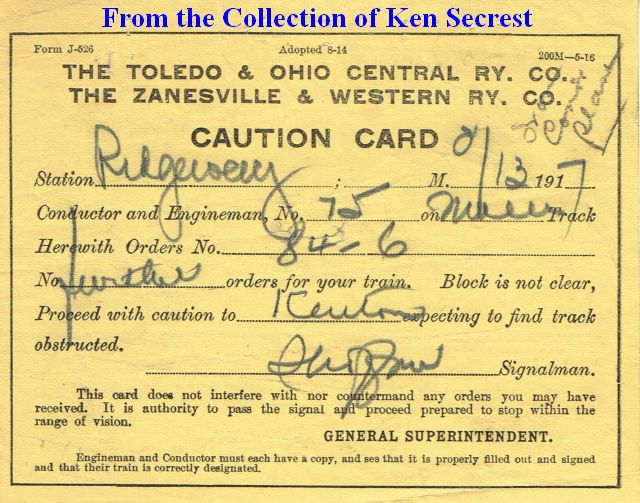 From the Collection of Ken Secrest
Form J-526 Adopted 8-14 200M—5-16
THE TOLEDO & OHIO CENTRAL RY. CO.
THE ZANESVILLE & WESTERN RY. CO.
CAUTION CARD
Station Ridgeway ; M. 8/13 1917
Conductor and Engineman, No. 75 on Track
Herewith Orders No. 84-6
No further orders for your train. Block is not clear,
Proceed with caution to Kenton expecting to find track
obstructed.
Signalman.
This card does not interfere with nor countermand any orders you may have
received. It is authority to pass the signal and proceed prepared to stop within the
range of vision.
GENERAL SUPERINTENDENT.
Engineman and Conductor must each have a copy, and see that it is properly filled out and signed
and that their train is correctly designated.